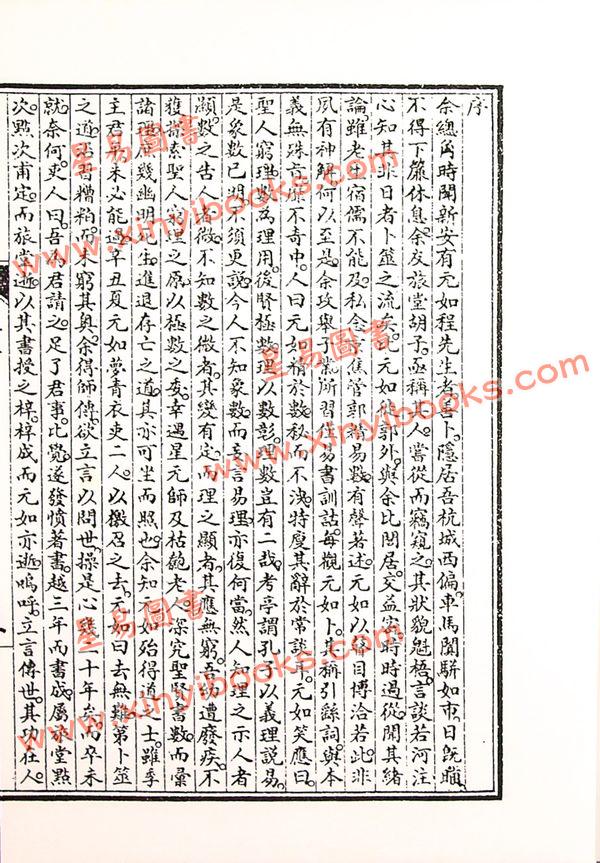 序
余總角時聞新安有元如程先生者善卜隱居吾杭城西偏車馬闐駢如市日旣曛
不得下簾休息余友旅堂胡子亟稱其人嘗從而竊窺之其狀貌魁梧言談若河注
心知其非日者卜筮之流矣比元如徙郭外與余比閭居交益密時時過從聞其緒
論雖老生宿儒不能及私念京焦管郭皆易數有聲著述元如以瞽目博洽若此非
夙有神解何以至是余攻舉子業所習在易書訓詁每觀元如卜其稱引繇詞與本
義無殊亦靡不奇中人曰元如精於數私而不決特廋其辭於常談耳元如笑應曰
聖人窮理數為理用後賢極數理以數彰理數豈有二哉考亭謂孔子以義理說易
是象數已明不須更說今人不知象數而妄言易理亦復何當然人知理之示人者
顯數之告人者微不知數之微者其變有定而理之顯者其應無窮吾幼遭廢疾不
獲探索聖人窮理之原以極數之变幸遇星元師及枯匏老人深究聖賢書數而彙
諸理庶幾幽明死生進退存亡之道其亦可坐而照也余知元如殆得道之士雖季
主君平未必能過辛丑夏元如夢青衣吏二人以檄召之去元如曰去無難第卜筮
之道沾沾糟粕而未窮其奧余得師傳欲立言以問世操是心幾十年矣而卒未
就奈何吏人曰吾為君請之足了君事比覺遂發憤著書越三年而書成屬旅堂點
次點次甫定而旅堂逝以其書授之梓梓成而元如亦逝嗚呼立言傳世其功在人
星易圖書
www.xinyibooks.com
星易圖書
www.xinyibooks.com
星易圖書
www.xinyibooks.com